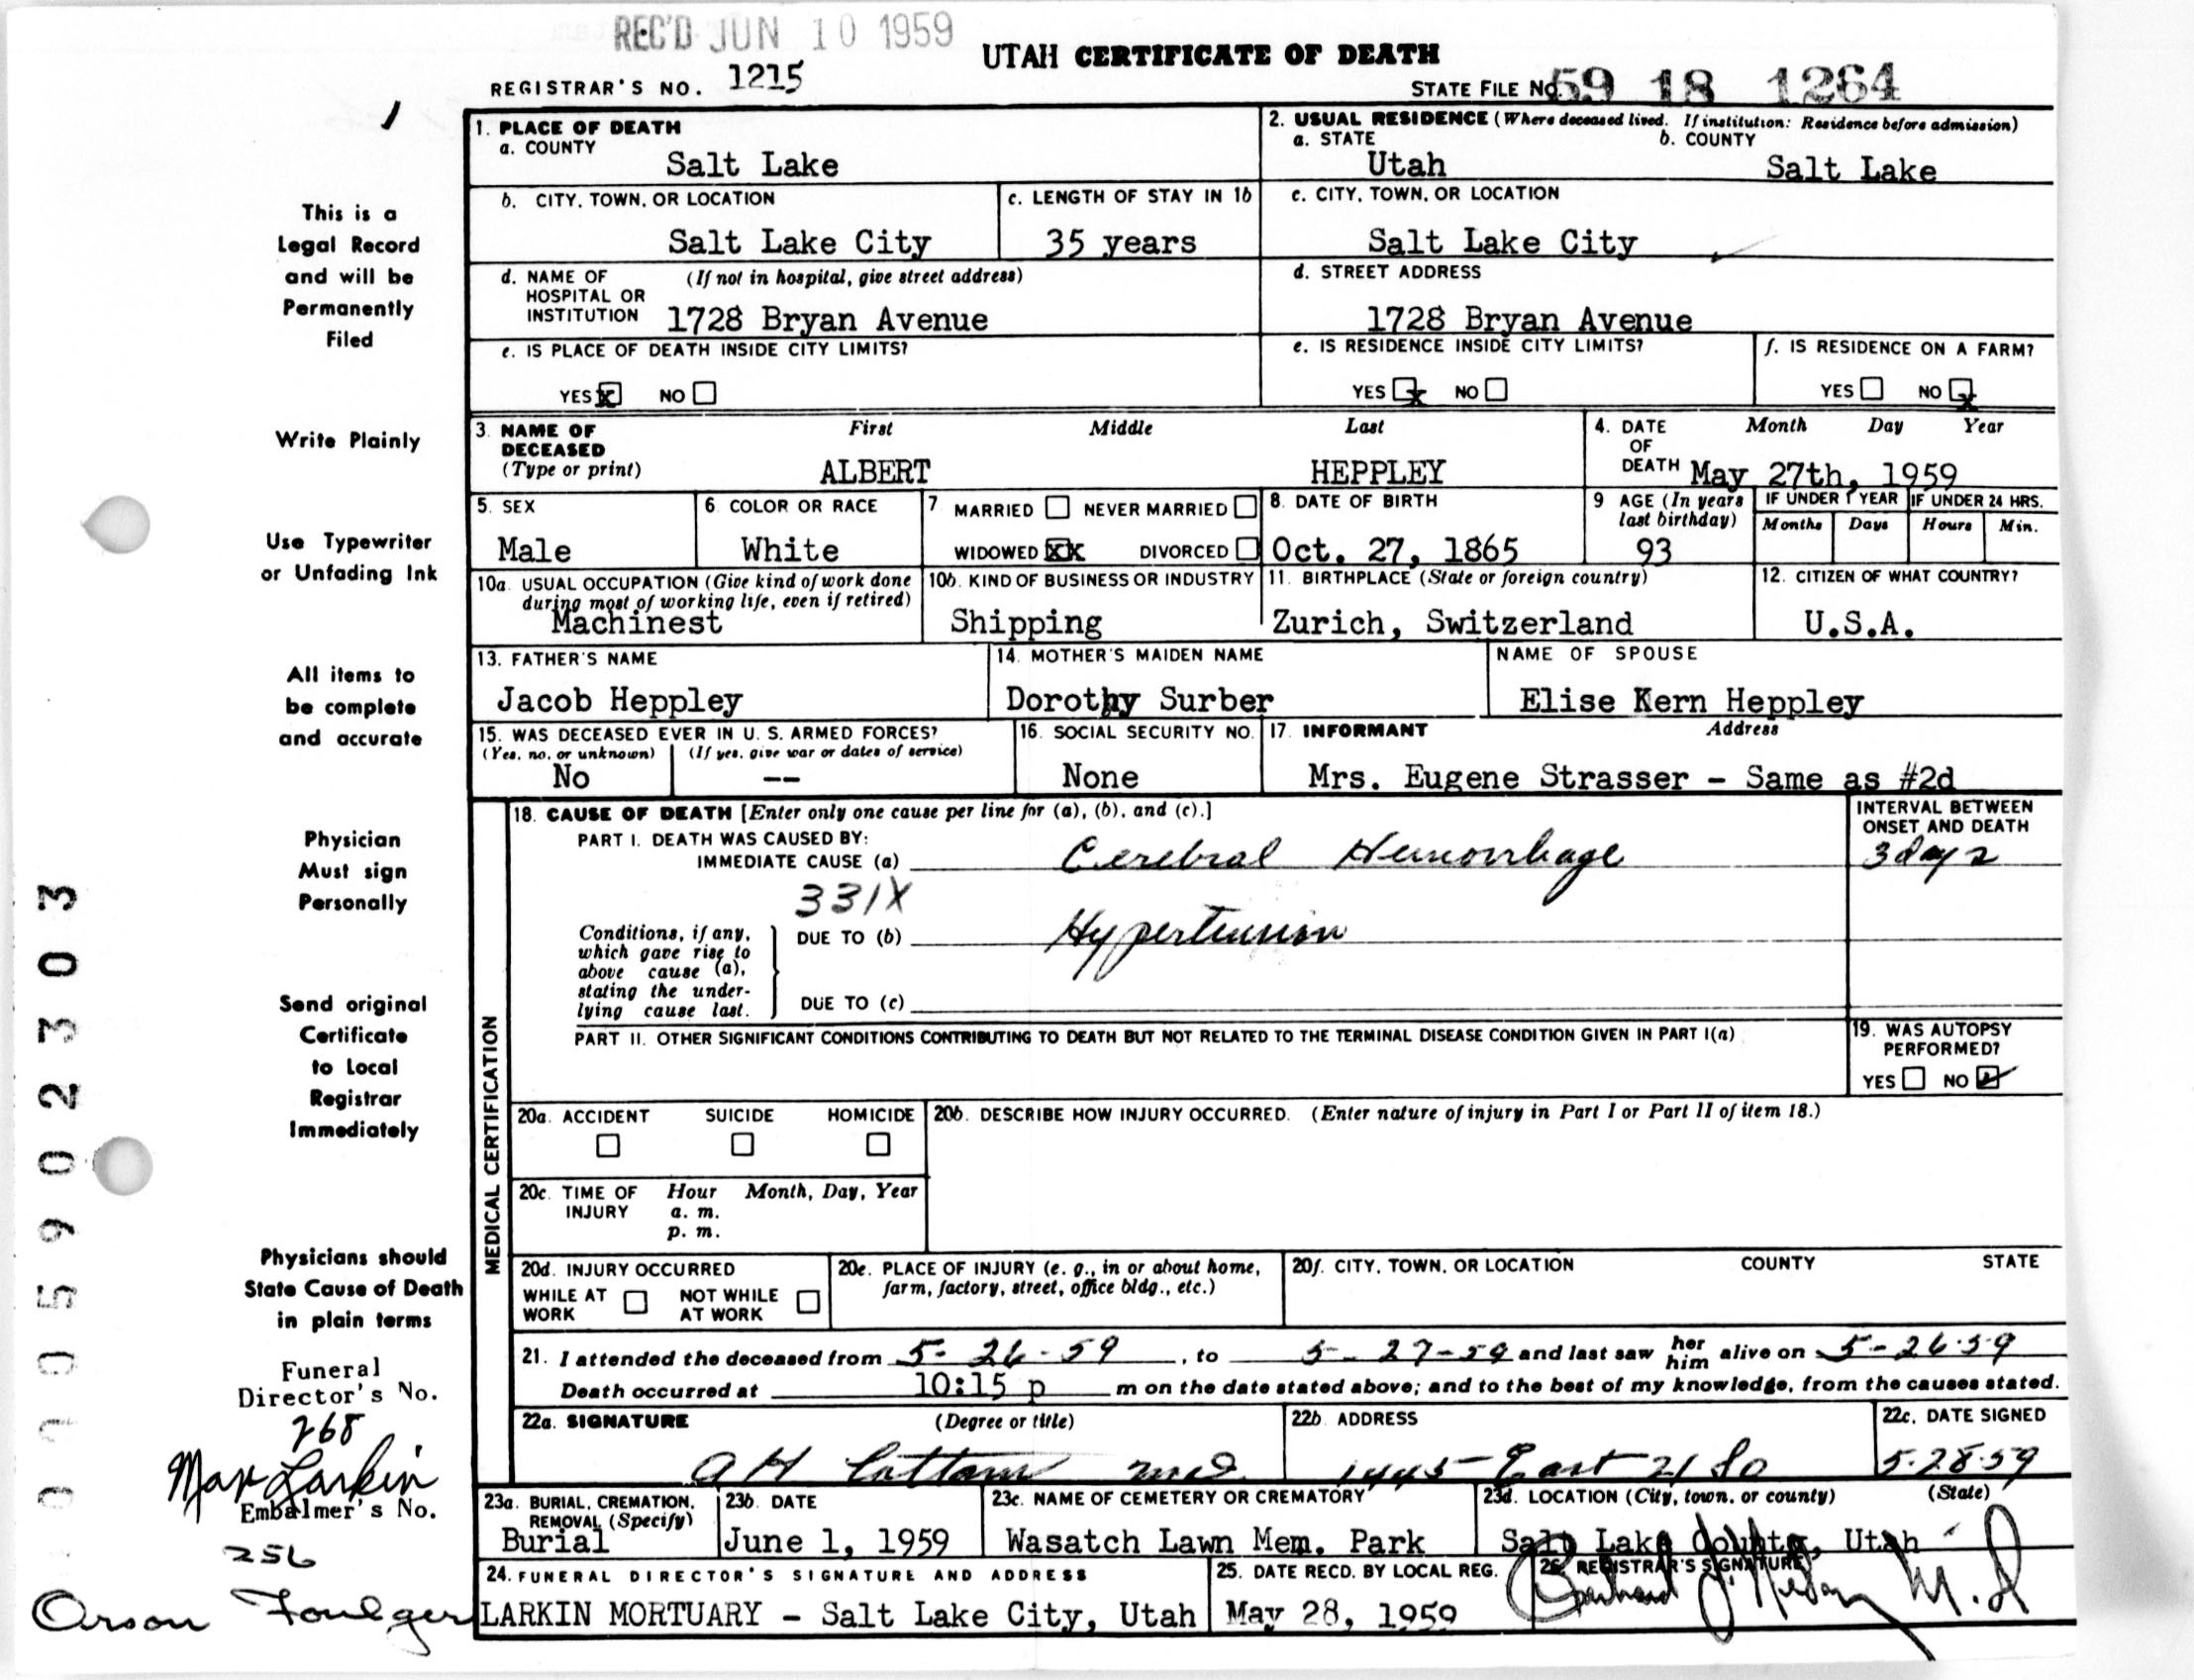 REC'D JUN 10 1959
UTAH CERTIFICATE OF DEATH
REGISTRAR'S NO. 1215
STATE FILE NO. 59 18 1264
This is a
Legal Record
and will be
Permanently
Filed
Write Plainly
Use Typewriter
or Unfading Ink
All items to
be complete
and accurate
Physician
Must sign
Personally
Send original
Certificate
to Local
Registrar
Immediately
Physicians should
State Cause of Death
in plain terms
Funeral
Director's No.
268
Max Larkin
Embalmer's No.
256
Orson Foulger
1. PLACE OF DEATH
a. COUNTY
Salt Lake
2. USUAL RESIDENCE (Where deceased lived. If institution: Residence before admission)
a. STATE b. COUNTY
Utah Salt Lake
b. CITY, TOWN, OR LOCATION
Salt Lake City
c. LENGTH OF STAY IN 1b
35 years
c. CITY, TOWN, OR LOCATION
Salt Lake City
d. NAME OF (If not in hospital, give street address)
HOSPITAL OR
INSTITUTION 1728 Bryan Avenue
d. STREET ADDRESS
1728 Bryan Avenue
e. IS PLACE OF DEATH INSIDE CITY LIMITS?
YES X NO
e. IS RESIDENCE INSIDE CITY LIMITS?
YES x NO
f. IS RESIDENCE ON A FARM?
YES NO x
3. NAME OF First Middle Last
DECEASED
(Type or print) ALBERT HEPPLEY
4. DATE Month Day Year
OF
DEATH May 27th, 1959
5. SEX
Male
6. COLOR OR RACE
White
7 MARRIED NEVER MARRIED
WIDOWED XX DIVORCED
8. DATE OF BIRTH
Oct. 27, 1865
9 AGE (In years
last birthday)
93
IF UNDER 1 YEAR IF UNDER 24 HRS.
Months Days Hours Min.
10a. USUAL OCCUPATION (Give kind of work done
during most of working life, even if retired)
Machinest
10b. KIND OF BUSINESS OR INDUSTRY
Shipping
11. BIRTHPLACE (State or foreign country)
Zurich, Switzerland
12. CITIZEN OF WHAT COUNTRY?
U.S.A.
13. FATHER'S NAME
Jacob Heppley
14. MOTHER'S MAIDEN NAME
Dorothy Surber
NAME OF SPOUSE
Elise Kern Heppley
15. WAS DECEASED EVER IN U. S. ARMED FORCES?
(Yes, no, or unknown) (If yes, give war or dates of service)
No --
16. SOCIAL SECURITY NO.
None
17. INFORMANT Address
Mrs. Eugene Strasser - Same as #2d
MEDICAL CERTIFICATION
18. CAUSE OF DEATH [Enter only one cause per line for (a), (b), and (c).]
PART I. DEATH WAS CAUSED BY:
IMMEDIATE CAUSE (a) Cerebral Hemorrhage
INTERVAL BETWEEN
ONSET AND DEATH
3 days
331X
Conditions, if any,
which gave rise to
above cause (a),
stating the under-
lying cause last.
DUE TO (b) Hypertension
DUE TO (c)
PART II. OTHER SIGNIFICANT CONDITIONS CONTRIBUTING TO DEATH BUT NOT RELATED TO THE TERMINAL DISEASE CONDITION GIVEN IN PART I(a)
19. WAS AUTOPSY
PERFORMED?
YES NO
20a. ACCIDENT SUICIDE HOMICIDE
20b. DESCRIBE HOW INJURY OCCURRED. (Enter nature of injury in Part I or Part II of item 18.)
20c. TIME OF Hour Month, Day, Year
INJURY a. m.
p. m.
20d. INJURY OCCURRED
WHILE AT NOT WHILE
WORK AT WORK
20e. PLACE OF INJURY (e. g., in or about home,
farm, factory, street, office bldg., etc.)
20f. CITY, TOWN, OR LOCATION COUNTY STATE
21. I attended the deceased from 5-26-59, to 5-27-59 and last saw her him alive on 5-26-59
Death occurred at 10:15 p m on the date stated above; and to the best of my knowledge, from the causes stated.
22a. SIGNATURE (Degree or title)
A H Cottam MD.
22b. ADDRESS
1445 East 21 So
22c. DATE SIGNED
5-28-59
23a. BURIAL, CREMATION,
REMOVAL (Specify)
Burial
23b. DATE
June 1, 1959
23c. NAME OF CEMETERY OR CREMATORY
Wasatch Lawn Mem. Park
23d. LOCATION (City, town, or county) (State)
Salt Lake County, Utah
24. FUNERAL DIRECTOR'S SIGNATURE AND ADDRESS
LARKIN MORTUARY - Salt Lake City, Utah
25. DATE RECD. BY LOCAL REG.
May 28, 1959
26. REGISTRAR'S SIGNATURE
M.D